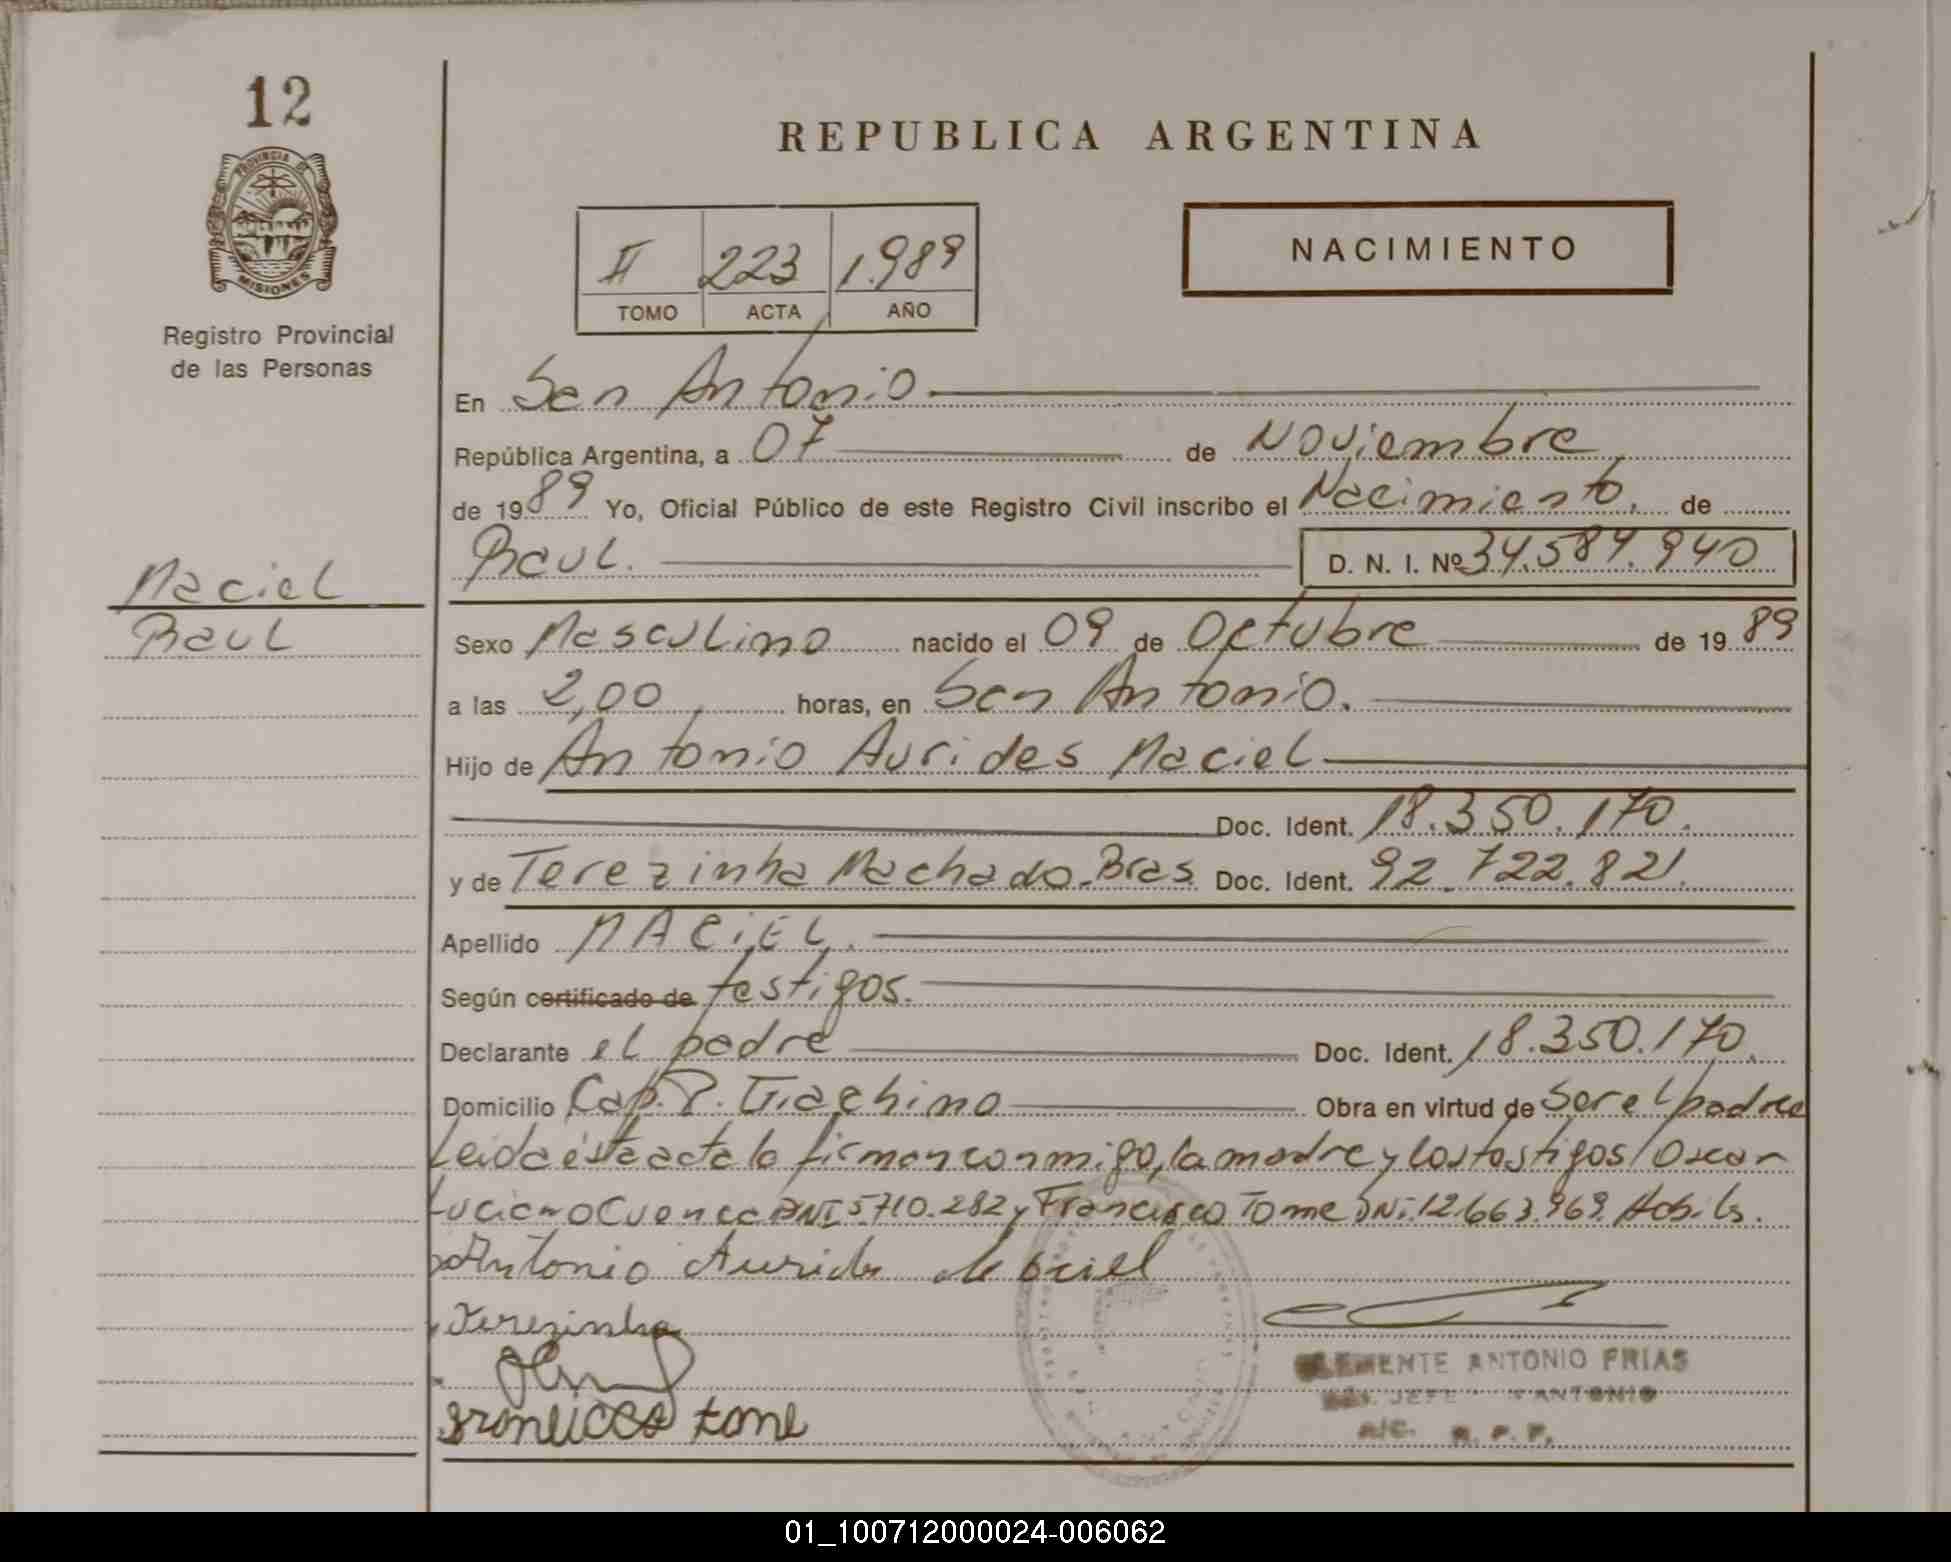 12
PROVINCIA DE
MISIONES
Registro Provincial
de las Personas
REPUBLICA ARGENTINA
II 223 1.989
TOMO ACTA AÑO
NACIMIENTO
En San Antonio
República Argentina, a 07 de Noviembre
de 1989 Yo, Oficial Público de este Registro Civil inscribo el Nacimiento. de
Raul. D. N. I. Nº 34.584.940
Maciel
Raul
Sexo Masculino nacido el 09 de Octubre de 1989
a las 2,00 horas, en San Antonio.
Hijo de Antonio Aurides Maciel
Doc. Ident. 18.350.170.
y de Terezinha Machado-Bras. Doc. Ident. 92.722.821.
Apellido MACiEL.
Según certificado de testigos.
Declarante el padre Doc. Ident. 18.350.170.
Domicilio Cap. P. Giachino Obra en virtud de Ser el padre
Leida ésta acta la firman conmigo, la madre y los testigos Oscar
Luciano Cuenca DNI 5710.282 y Francisco Tome DNi:12.663.969. Habils.
Antonio Aurides Maciel
Terezinha
francicco tome
CLEMENTE ANTONIO FRIAS
JEFE ANTONIO
A/C. R. P. P.
01_100712000024-006062